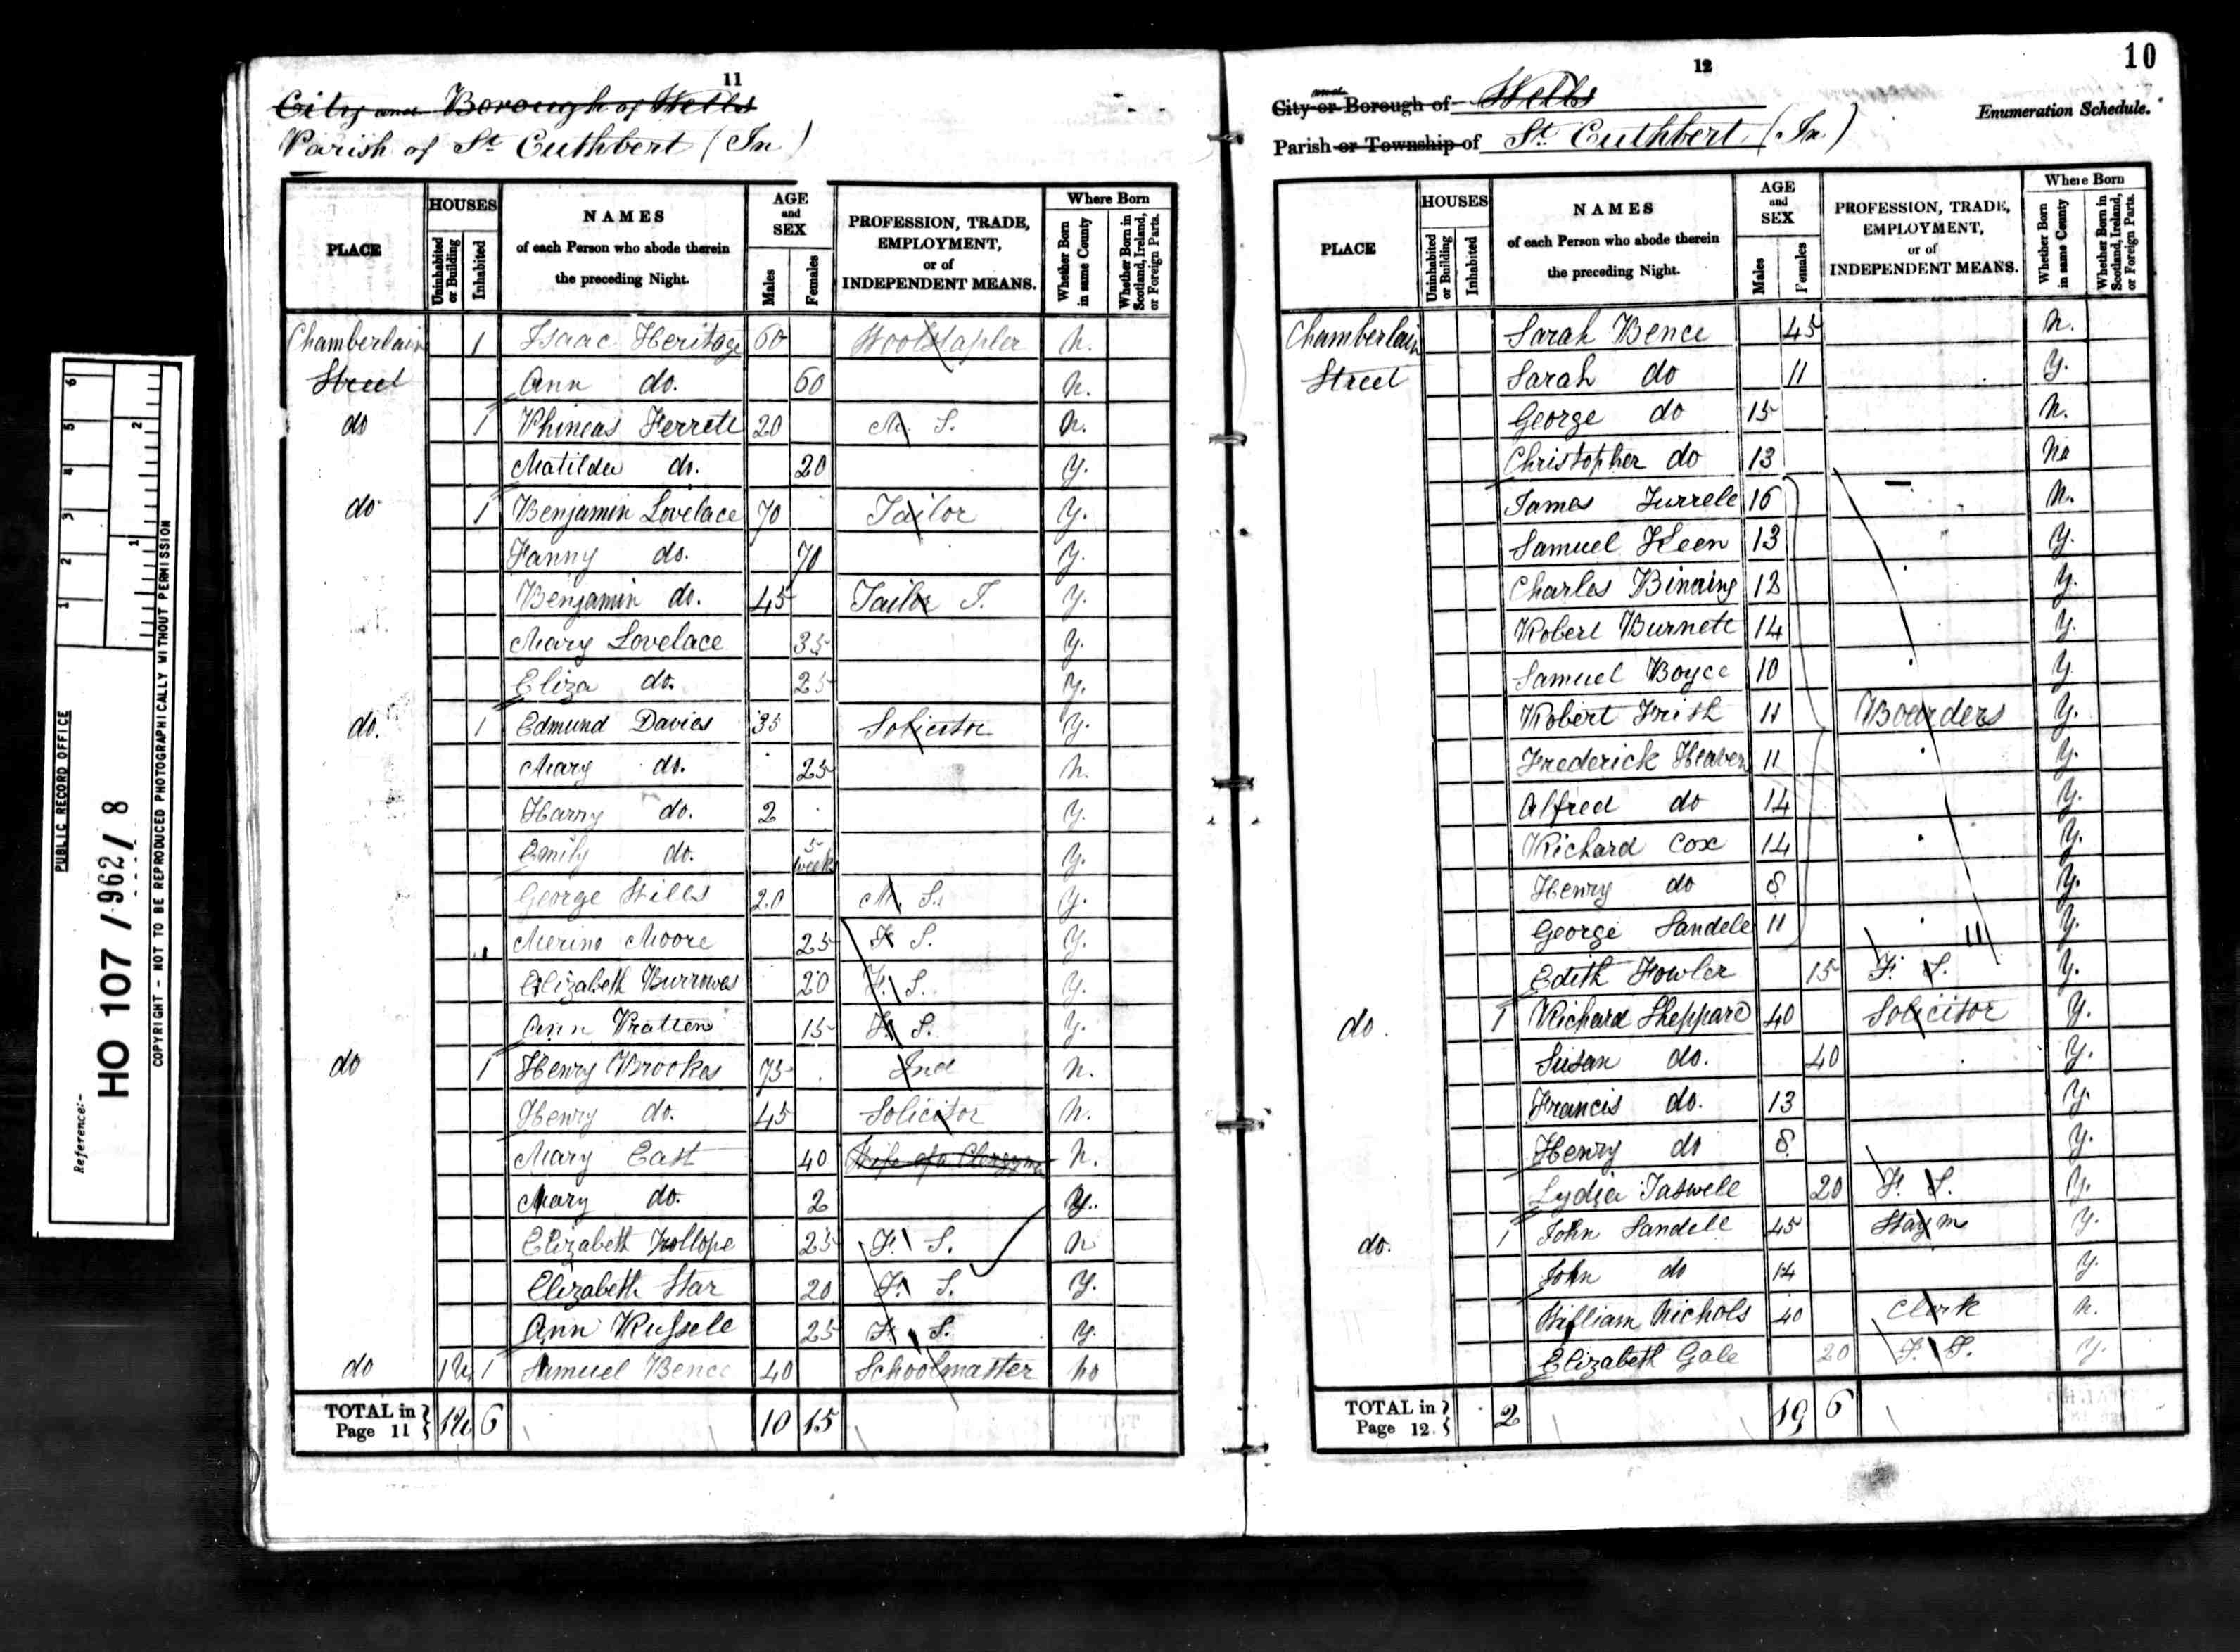 PUBLIC RECORD OFFICE
Reference:-
HO 107 / 962 / 8
COPYRIGHT - NOT TO BE REPRODUCED PHOTOGRAPHICALLY WITHOUT PERMISSION
11
City and Borough of Wells
Parish of St Cuthbert (In)
PLACE HOUSES Uninhabited or Building Inhabited NAMES of each Person who abode therein the preceding Night. AGE and SEX Males Females PROFESSION, TRADE, EMPLOYMENT, or of INDEPENDENT MEANS. Where Born Whether Born in same County Whether Born in Scotland, Ireland, or Foreign Parts.
Chamberlain 1 Isaac Heritage 60 Woolstapler N.
Street Ann do. 60 N.
do 1 Phineas Ferrett 20 M. S. N.
Matilda do. 20 Y.
do 1 Benjamin Lovelace 70 Tailor Y.
Fanny do. 70 Y.
Benjamin do. 45 Tailor J. Y.
Mary Lovelace 35 Y.
Eliza do. 25 Y.
do. 1 Edmund Davies 35 Solicitor Y.
Mary do. 25 N.
Harry do. 2 Y.
Emily do. 5 weeks Y.
George Wills 20 M. S. Y.
Merino Moore 25 F. S. Y.
Elizabeth Burrows 20 F. S. Y.
Ann Pratten 15 F. S. Y.
do 1 Henry Brookes 75 Ind N.
Henry do. 45 Solicitor N.
Mary East 40 Wife of a Clergyman N.
Mary do. 2 Y.
Elizabeth Trollope 25 F. S. N
Elizabeth Star 20 F. S. Y.
Ann Russell 25 F. S. Y.
do 1U 1 Samuel Bence 40 Schoolmaster No
TOTAL in Page 11 } 1U 6 10 15
10
12
City or and Borough of Wells
Enumeration Schedule.
Parish or Township of St. Cuthbert (In)
PLACE HOUSES Uninhabited or Building Inhabited NAMES of each Person who abode therein the preceding Night. AGE and SEX Males Females PROFESSION, TRADE, EMPLOYMENT, or of INDEPENDENT MEANS. Where Born Whether Born in same County Whether Born in Scotland, Ireland, or Foreign Parts.
Chamberlain Sarah Bence 45 N.
Street Sarah do 11 Y.
George do 15 N.
Christopher do 13 No
James Turrell 16 N.
Samuel Keen 13 Y.
Charles Binning 12 Y.
Robert Burnett 14 Y.
Samuel Boyce 10 Y.
Robert Frith 11 Boarders Y.
Frederick Heaven 11 Y.
Alfred do 14 Y.
Richard Cox 14 Y.
Henry do 8 Y.
George Sandell 11 Y.
Edith Fowler 15 F. S. Y.
do. 1 Richard Sheppard 40 Solicitor Y.
Susan do. 40 Y.
Francis do. 13 Y.
Henry do 8 Y.
Lydia Taswell 20 F. S. Y.
do. 1 John Sandell 45 Stay m Y.
John do 14 Y.
William Nichols 40 Clerk N.
Elizabeth Gale 20 F. S. Y.
TOTAL in Page 12. } 2 19 6